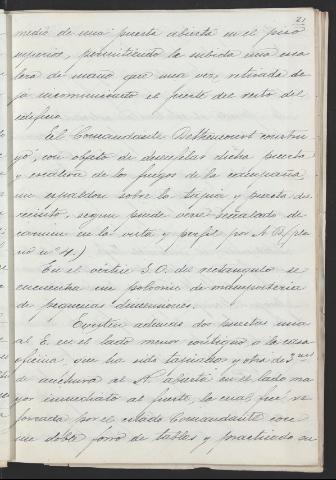 21
medio de una puerta abierta en el piso
superior, permitiendo la subida una esca
lera de mano que una vez retirada de
ja incomunicado el fuerte del resto del
edificio.
El Comandante Bethencourt constru
yó, con objeto de desenfilar dicha puerta
y escalera de los fuegos de la campaña,
un espaldon sobre la tapia y puerta de
recinto, segun puede verse señalado de
carmin en la vista y perfil por A B, (pla
no nº 4.)
En el vértice S.O. del rectángulo se
encuentra un polvorin de mamposteria
de pequeñas dimensiones.
Existen ademas dos puertas una
al E. en el lado menor contiguo a la casa
oficina, que ha sido tapiada y otra de 3 mts
de anchura al N. abierta en el lado ma
yor inmediato al fuerte, la cual fué re
forzada por el citado Comandante con
un doble forro de tablas y practicado su